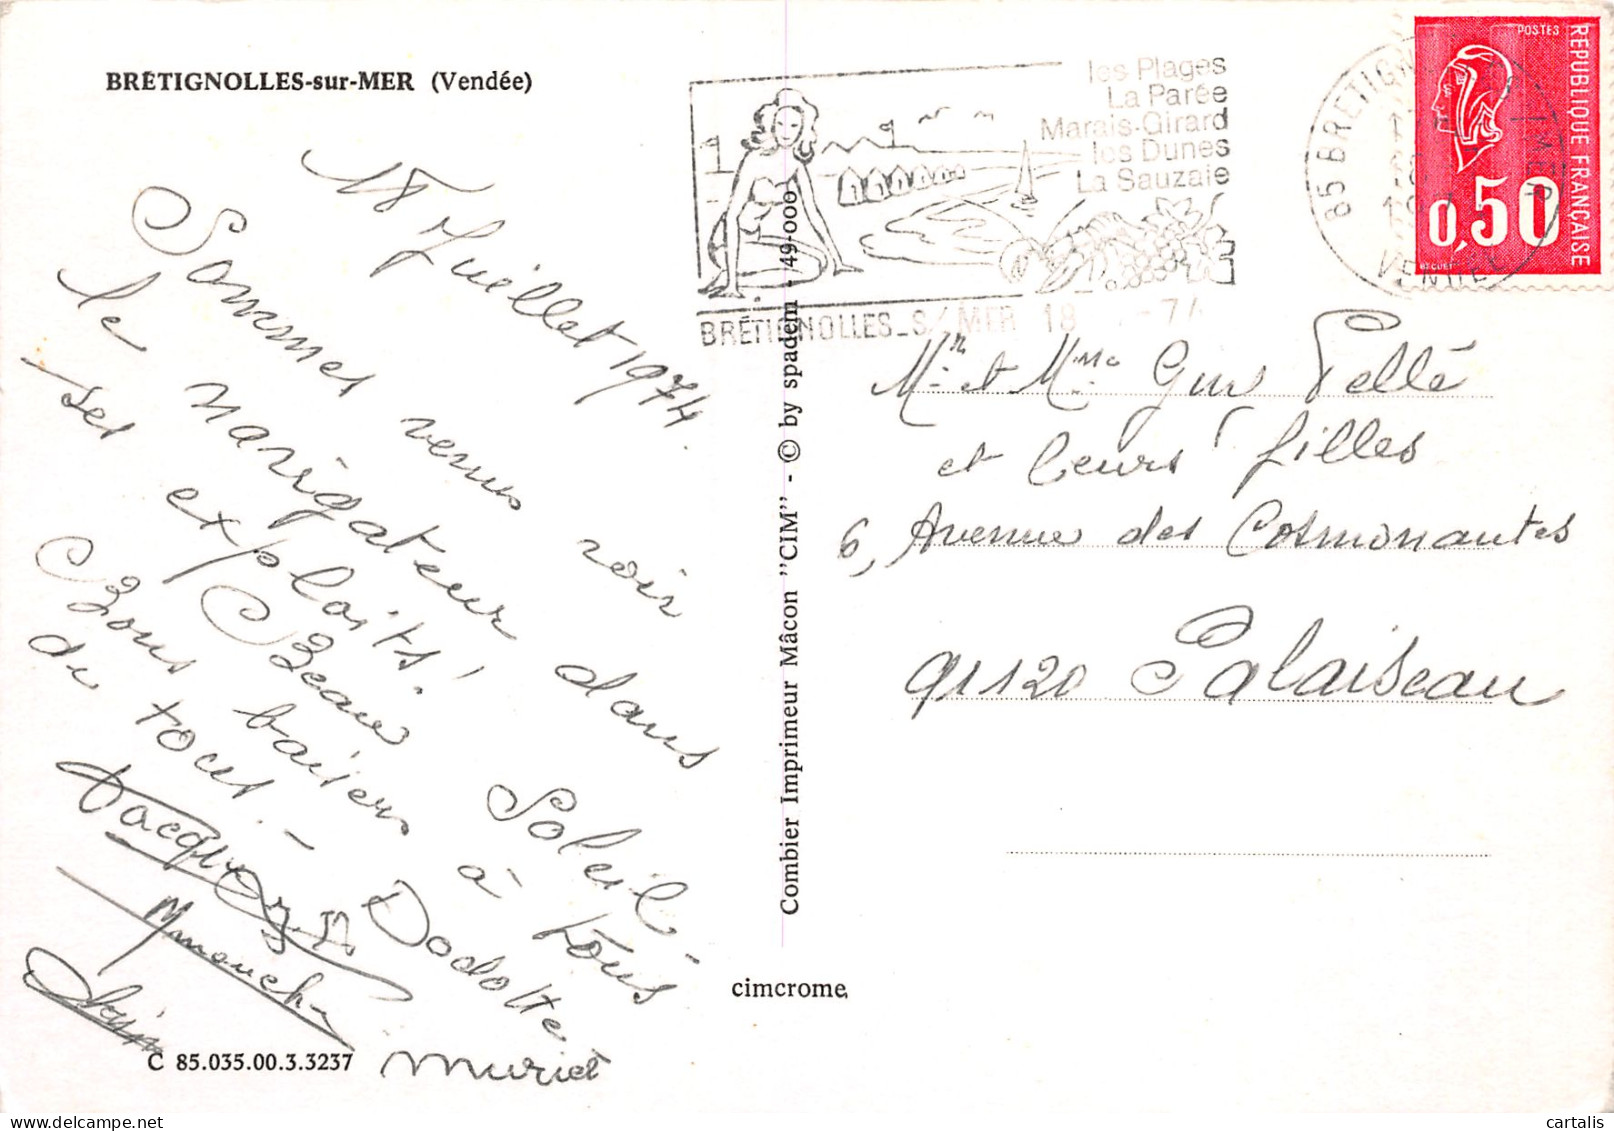 BRÉTIGNOLLES-sur-MER (Vendée)
18 Juillet 1974.
Sommes venus voir
le navigateur dans
ses exploits!
Beau Soleil -
Bons baisers à tous
de tous. -
Jacques
Dodotte
Manouche
Alain
Muriel
C 85.035.00.3.3237
Combier Imprimeur Mâcon "CIM" - © by spadem - 49-000
cimcrome
les Plages
La Parée
Marais-Girard
les Dunes
La Sauzaie
BRÉTIGNOLLES_S/MER 18 -74
85 BRETIGN
VENDEE
POSTES
REPUBLIQUE FRANÇAISE
0,50
BEQUET
Mr et Mme Guy Pellé
et leurs filles
6, Avenue des Cosmonautes
91120 Palaiseau
BRÉTIGNOLLES-SUR-MER
cartalis